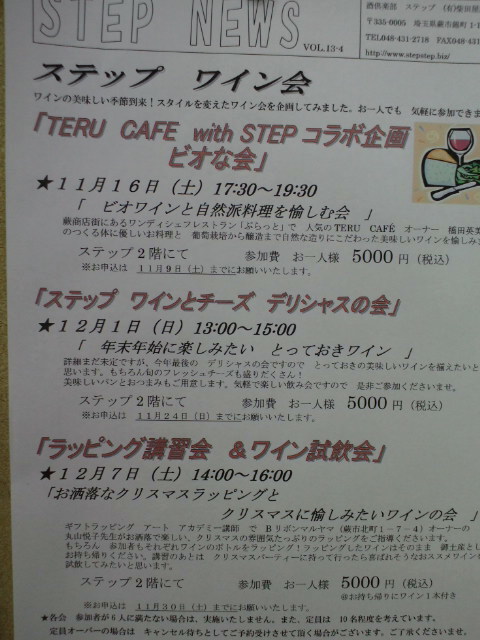 STEP NEWS
VOL.13-4
酒倶楽部 ステップ (有)柴田屋
〒335-0005 埼玉県蕨市錦町
TEL048-431-2718 FAX048-431
http://www.stepstep.biz/
ステップ ワイン会
ワインの美味しい季節到来!スタイルを変えたワイン会を企画してみました。お一人でも 気軽に参加できま
「TERU CAFE with STEPコラボ企画
ビオな会」
★11月16日(土)17:30~19:30
「 ビオワインと自然派料理を愉しむ会 」
蕨商店街にあるワンディシュフレストラン「ぷらっと」で 人気のTERU CAFÉ オーナー 橋田英美
のつくる体に優しいお料理と 葡萄栽培から醸造まで自然な造りにこだわった美味しいワインを愉しみま
ステップ2階にて 参加費 お一人様 5000円(税込)
※お申込は 11月9日(土)までにお願いいたします。
「ステップ ワインとチーズ デリシャスの会」
★12月1日(日)13:00~15:00
「 年末年始に楽しみたい とっておきワイン 」
詳細まだ未定ですが、今年最後の デリシャスの会ですので とっておきの美味しいワインを揃えたいと
思います。もちろん旬のフレッシュチーズも盛りだくさん!
美味しいパンとおつまみもご用意します。気軽で楽しい飲み会ですので 是非ご参加くださいませ。
ステップ2階にて 参加費 お一人様 5000円(税込)
※お申込は 11月24日(日)までにお願いいたします。
「ラッピング講習会 &ワイン試飲会」
★12月7日(土)14:00~16:00
「お洒落なクリスマスラッピングと
クリスマスに愉しみたいワインの会 」
ギフトラッピング アート アカデミー講師 で Bリボンマルヤマ(蕨市北町1-7-4)オーナーの
丸山悦子先生がお洒落で楽しい、クリスマスの雰囲気たっぷりのラッピングをご指導くださいます。
もちろん 参加者もそれぞれワインのボトルをラッピング!ラッピングしたワインはそのまま 御土産とし
お持ち帰りください。講習のあとは クリスマスパーティーに持って行ったら喜ばれそうなおススメワイン
試飲してみたいと思います。
ステップ2階にて 参加費 お一人様 5000円(税込)
※お持ち帰りにワイン1本付き
※お申込は 11月30日(土)までにお願いいたします。
★各会 参加者が6人に満たない場合は、実施いたしません。また、定員は 10名程度を考えています。
定員オーバーの場合は キャンセル待ちとしてご予約させて頂く場合がございます。ご了承くださいませ。